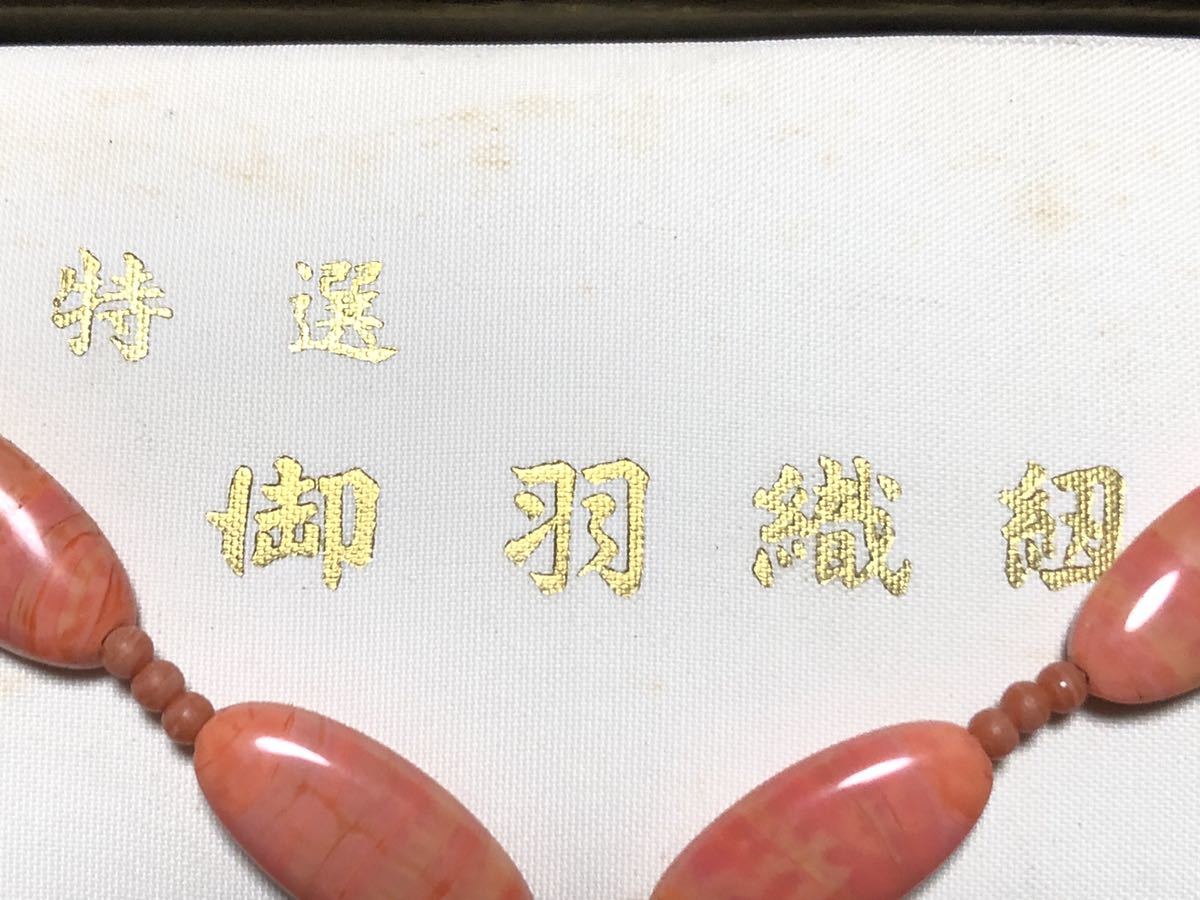 特選
御羽織紐